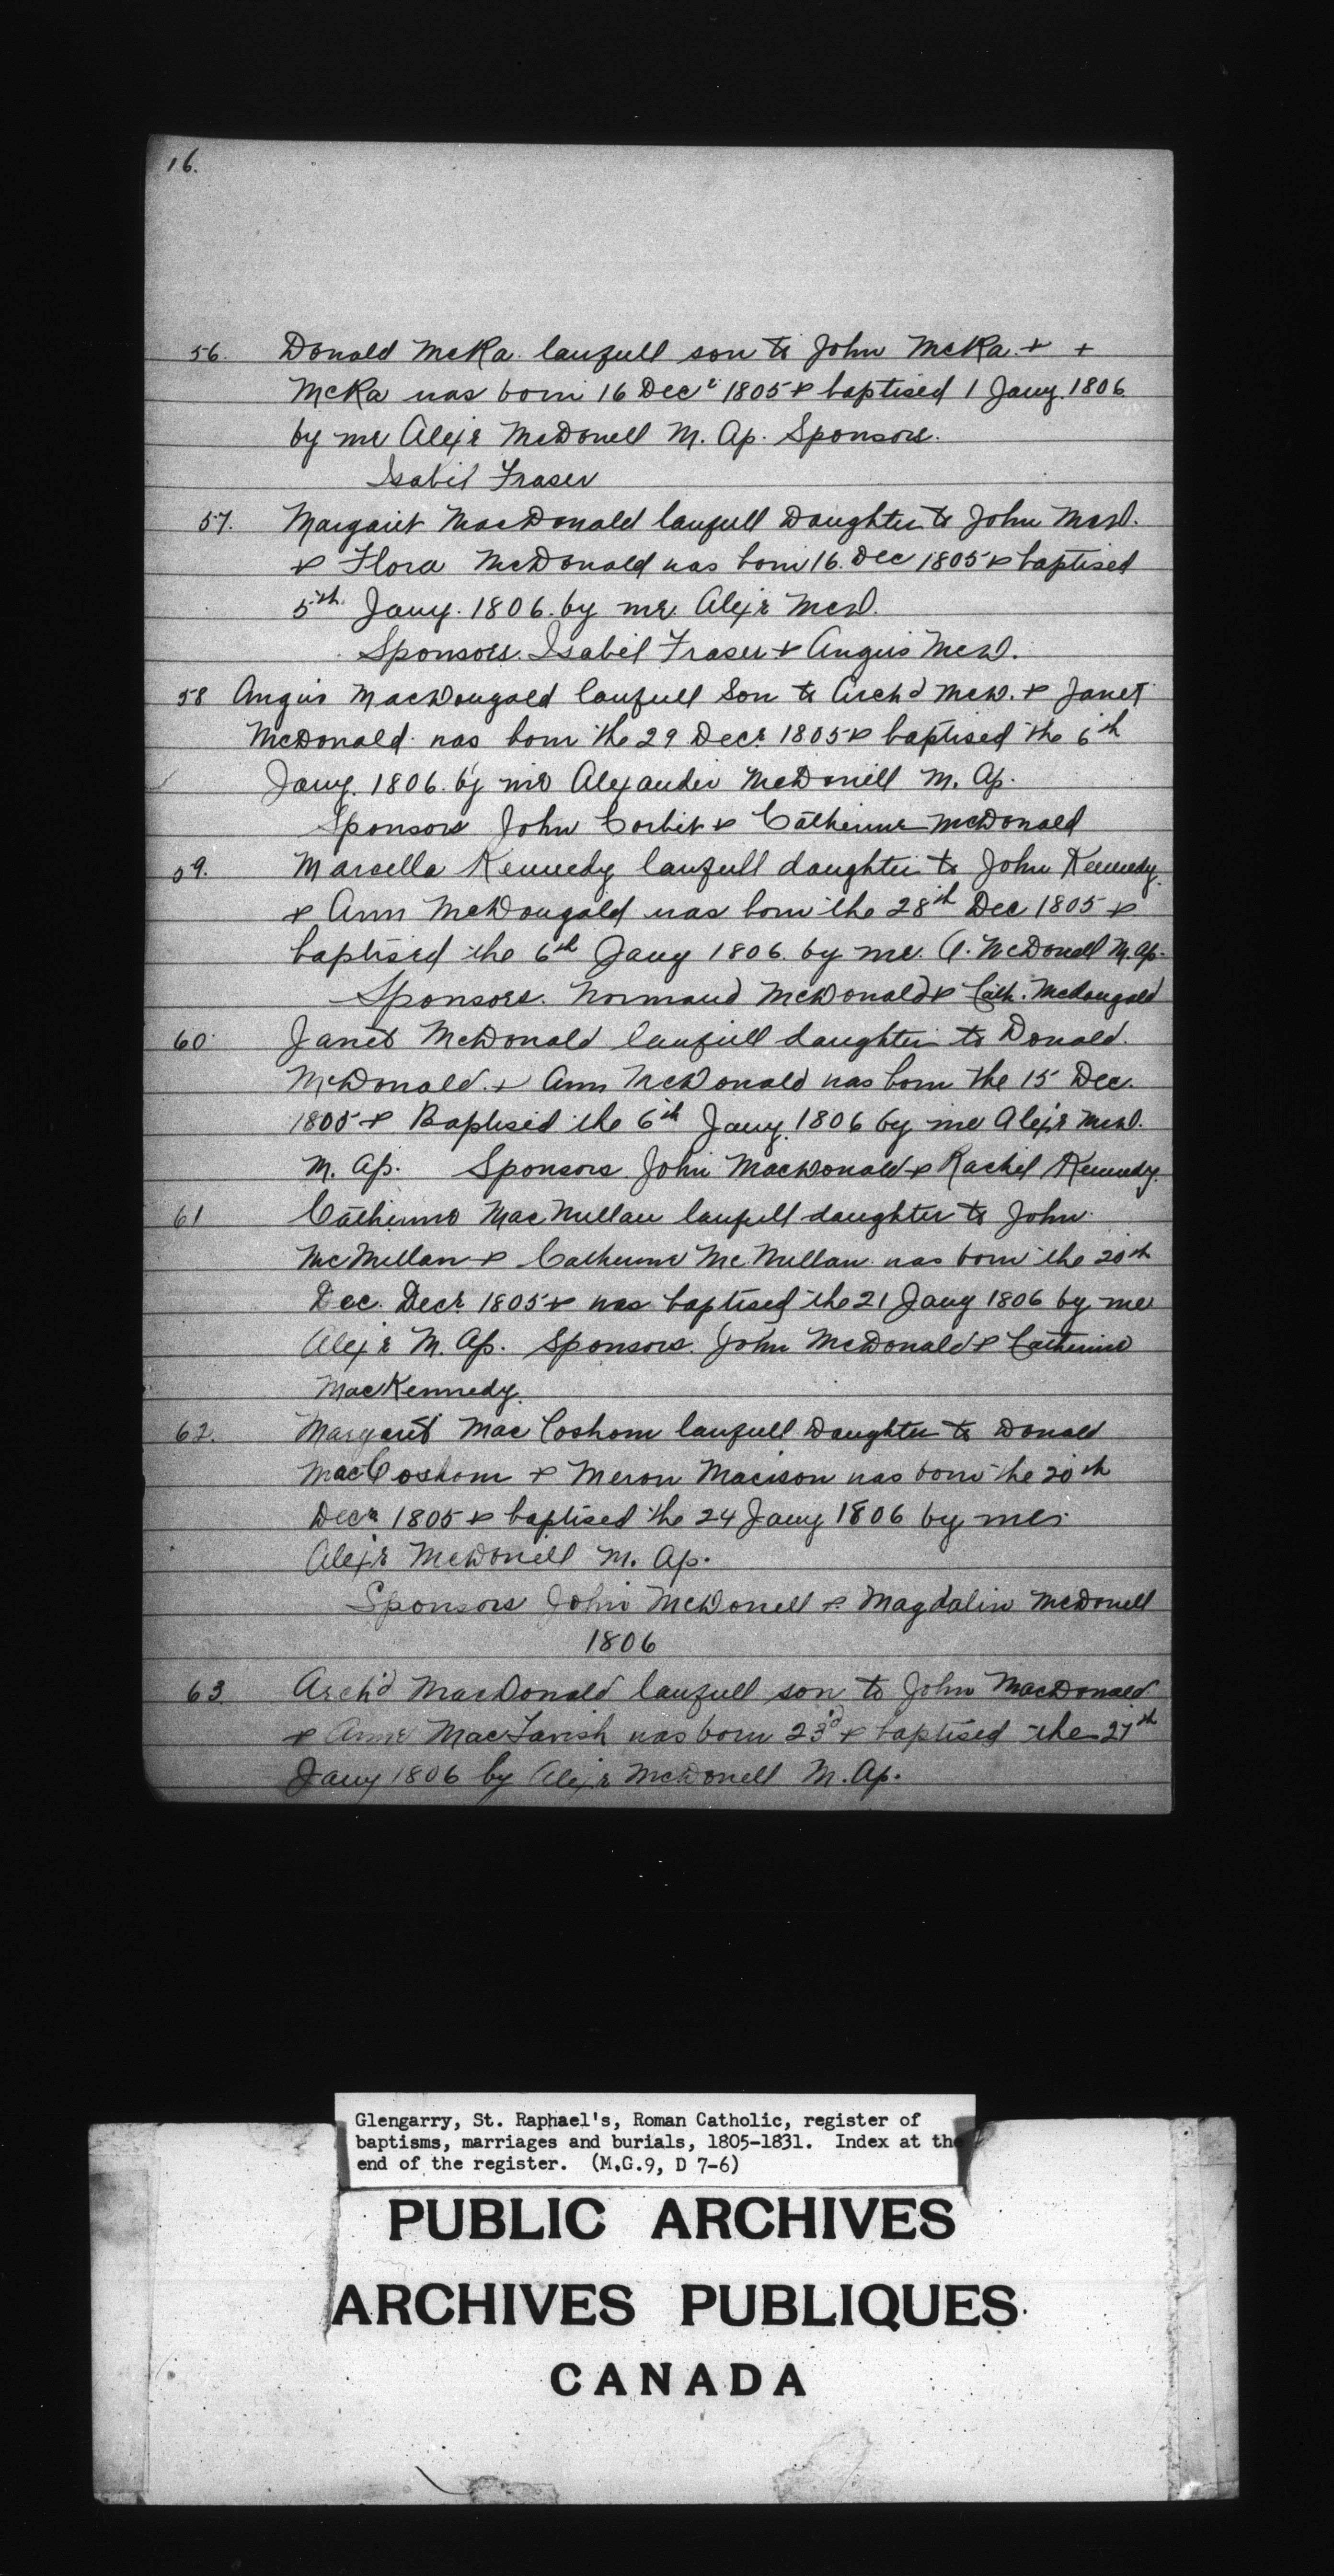 16.
56. Donald McKa. laufull son to John McKa. + +
McKa was born 16 Decr 1805 & baptised 1 Jany. 1806
by me Alexr McDonell M. Ap. Sponsors.
Isabel Fraser
57. Margaret MacDonald laufull Daughter to John McD.
& Flora McDonald was born 16. Dec 1805 & baptised
5th Jany. 1806. by me. Alexr McD.
Sponsors. Isabel Fraser & Angus McD.
58 Angus MacDougald laufull Son to Archd McD. & Janet
McDonald was born the 29 Decr. 1805 & baptised the 6th
Jany. 1806. by me Alexander McDonell M. Ap.
Sponsors John Corbit & Catherine McDonald
59. Marcella Kennedy laufull daughter to John Kennedy
& Ann McDougald was born the 28th Dec 1805 &
baptised the 6th Jany 1806. by me. A. McDonell M. Ap.
Sponsors. Normand McDonald & Cath. McDougald
60. Janet McDonald laufull daughter to Donald.
McDonald. & Ann McDonald was born the 15 Dec.
1805 & Baptised the 6th Jany. 1806 by me Alexr McD.
M. Ap. Sponsors John MacDonald & Rachel Kennedy.
61 Catherine MacMillan laufull daughter to John
McMillan & Catherine McMillan was born the 20th
Dec. Decr. 1805 & was baptised the 21 Jany 1806 by me
Alexr M. Ap. Sponsors John McDonald & Catherine
MacKennedy.
62. Margaret Mac Coshom laufull Daughter to Donald
MacCoshom & Meron was born the 20th
Decr 1805 & baptised the 24 Jany 1806 by me
Alexr McDonell M. Ap.
Sponsors John McDonell & Magdalin McDonell
1806
63. Archd MacDonald laufull son to John MacDonald
& Anne MacTavish was born 23d & baptised the 27th
Jany 1806 by Alexr McDonell M. Ap.
Glengarry, St. Raphael's, Roman Catholic, register of
baptisms, marriages and burials, 1805-1831. Index at the
end of the register. (M.G.9, D 7-6)
PUBLIC ARCHIVES
ARCHIVES PUBLIQUES
CANADA